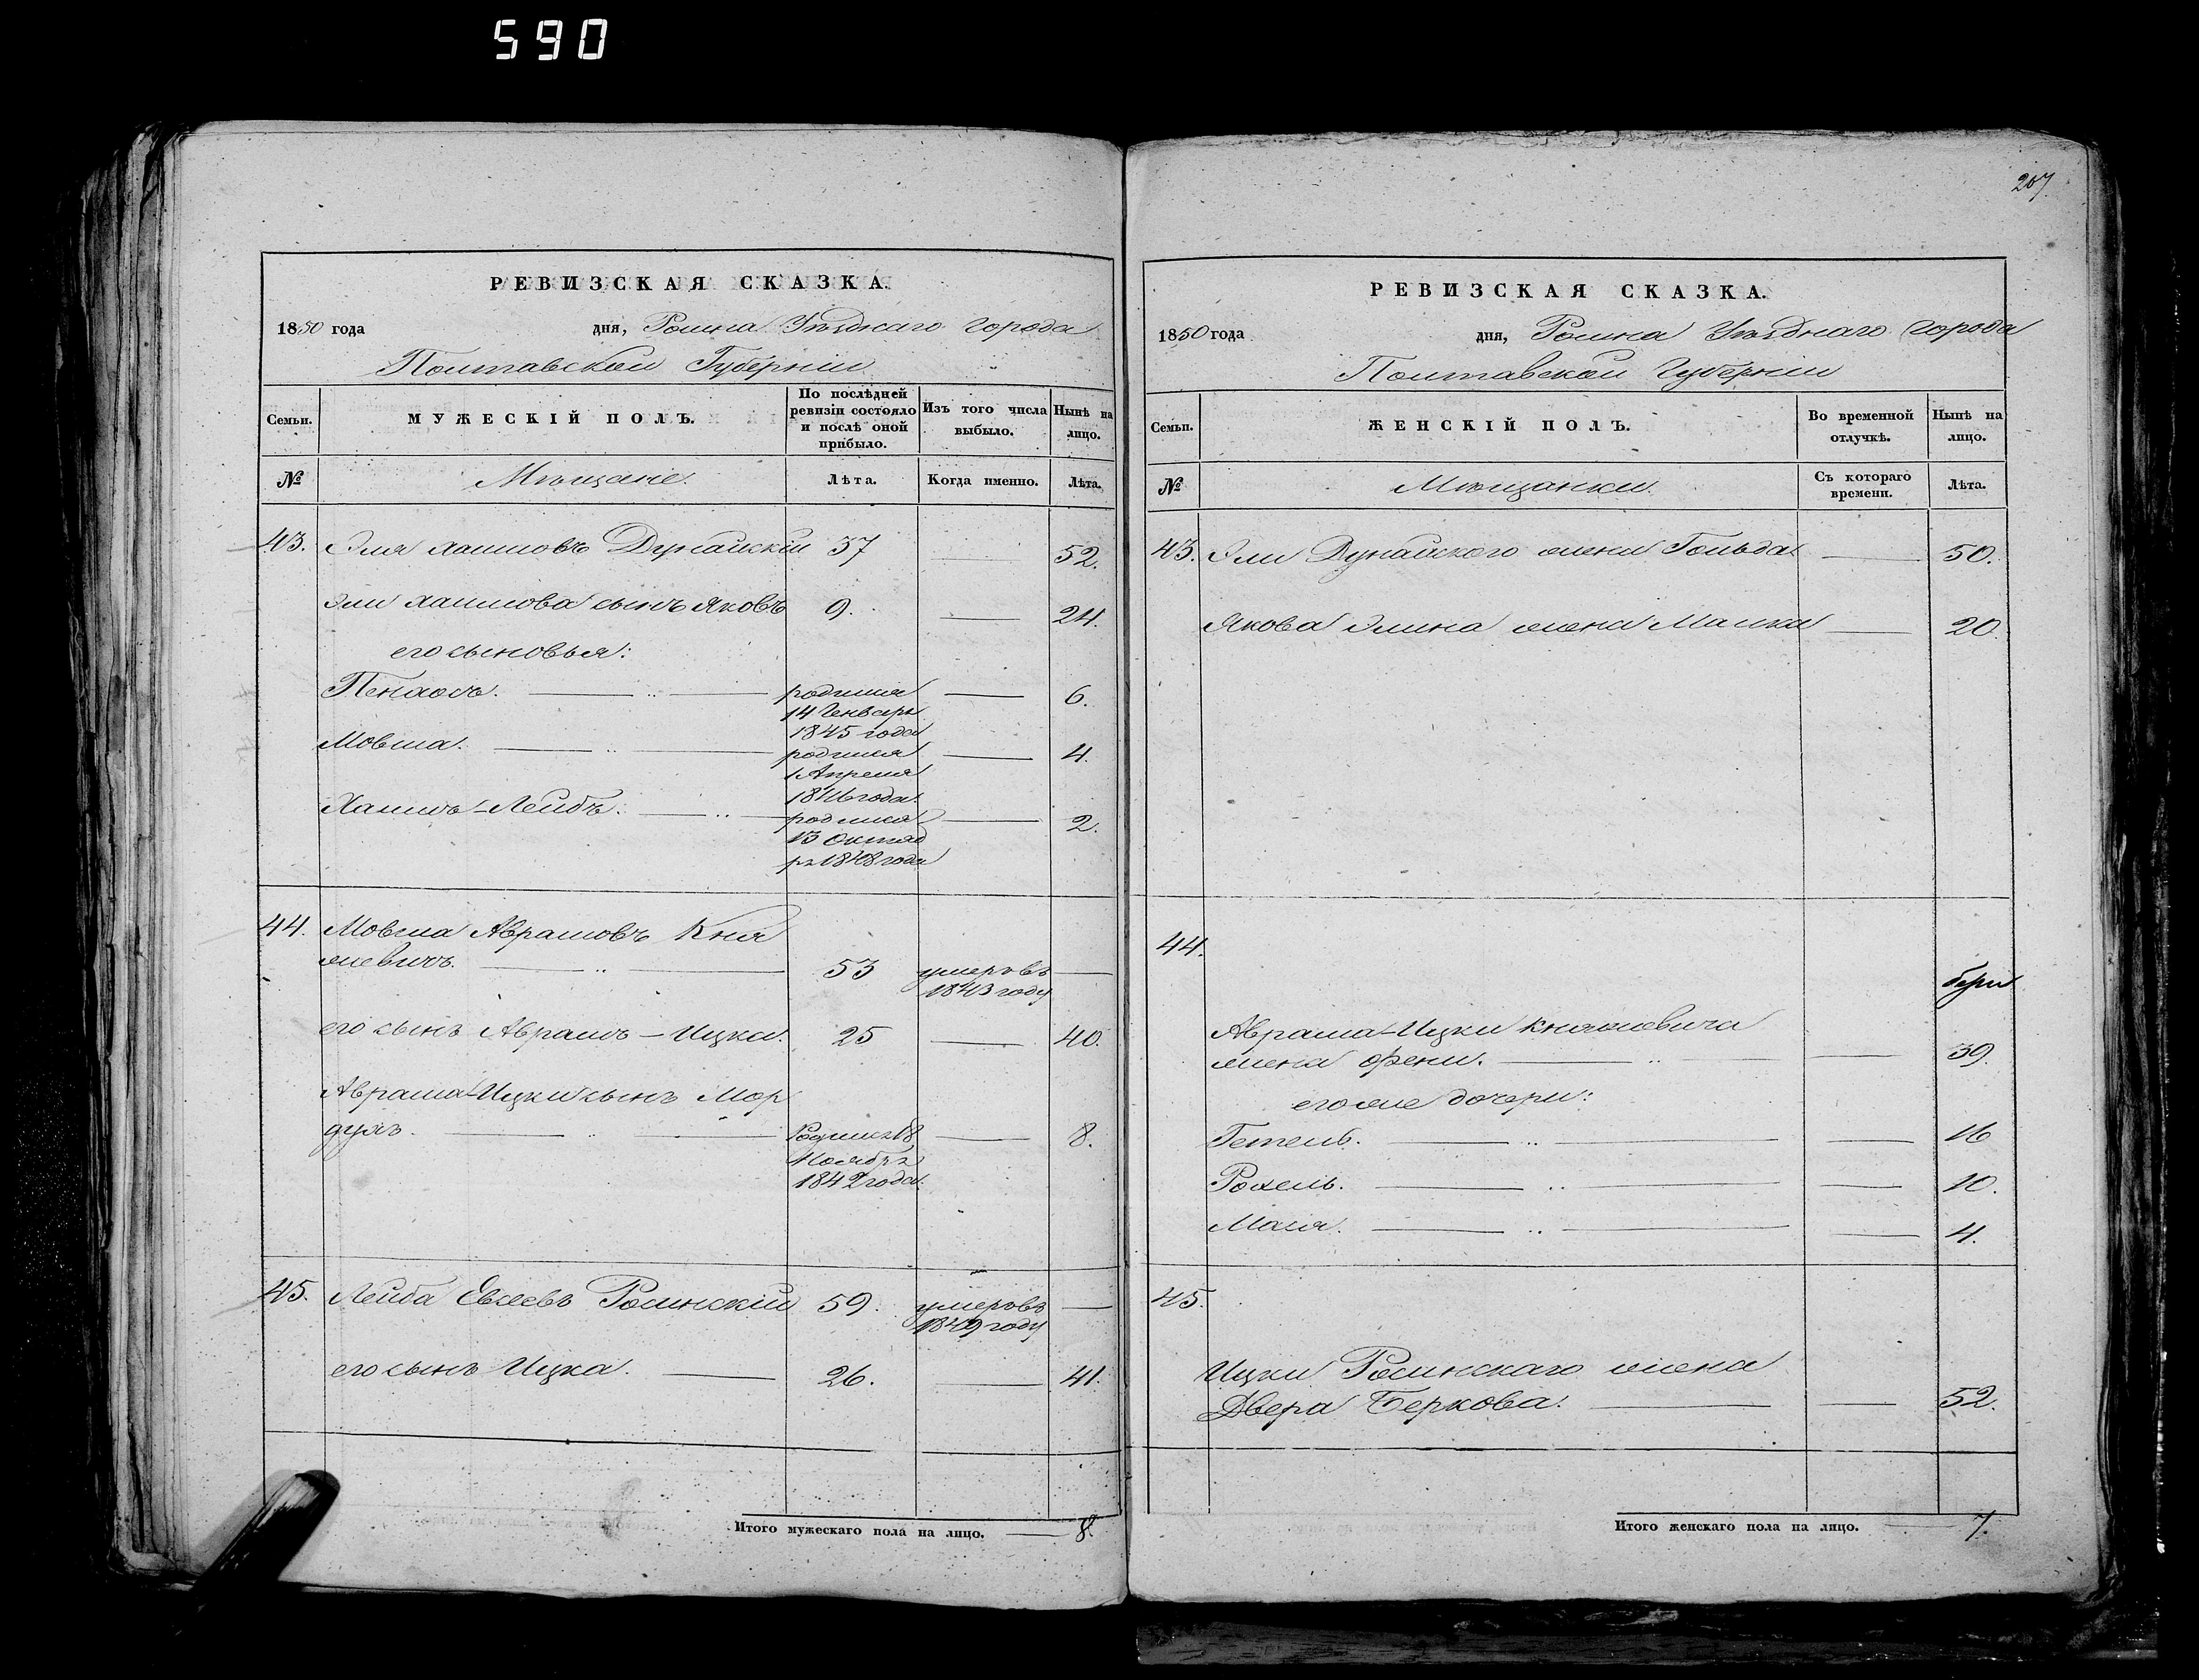 590
РЕВИЗСКАЯ СКАЗКА.
1850 года дня, Ромна Уѣзднаго города
Полтавской Губерніи
Семьи.
МУЖЕСКІЙ ПОЛЪ.
По послѣдней ревизіи состояло и послѣ оной прибыло.
Изъ того числа выбыло.
Нынѣ на лицо.
№
Мѣщане.
Лѣта.
Когда именно.
Лѣта.
43. Эля Хаимовъ Дунайскій 37 52.
Эли Хаимова сынъ Яковъ 9. 24.
его сыновья:
родился 6.
14 Генваря
1845 года
Мовша. родился 4.
1 Апреля
1846 года.
Хаимъ-Лейбъ. родился 2.
13 Октяб
ря 1848 года
44. Мовша Аврамовъ Кня
жевичъ. 53 умеръ въ
1843 году
его сынъ Аврамъ-Ицка. 25 40.
Аврама-Ицки сынъ Мор
духъ. Родился 18 8.
Ноября
1842 года.
45. Лейба Евсеевъ Роменскій 59. умеръ въ
1849 году
его сынъ Ицка. 26. 41.
Итого мужескаго пола на лицо. 8.
207
РЕВИЗСКАЯ СКАЗКА.
1850 года дня, Ромна Уѣзднаго города
Полтавской Губерніи
Семьи.
ЖЕНСКІЙ ПОЛЪ.
Во временной отлучкѣ.
Нынѣ на лицо.
№
Мѣщанки.
Съ котораго времени.
Лѣта.
43. Эли Дунайского жена Гольда 50.
Якова Элина жена Малка 20.
44.
Аврама-Ицки Княжевича
жена Фени. 39.
его же дочери:
Гетель. 16
Рохель. 10.
Мася. 4.
45.
Ицки Роменскаго жена
Двера Беркова. 52.
Итого женскаго пола на лицо. 7.